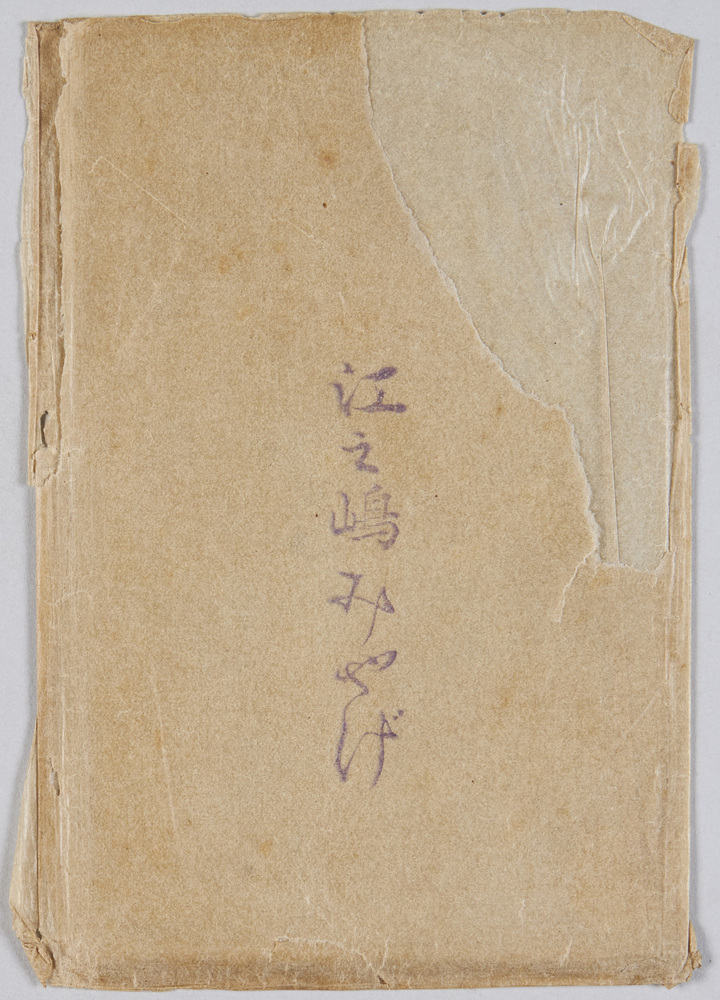 江之嶋みやげ